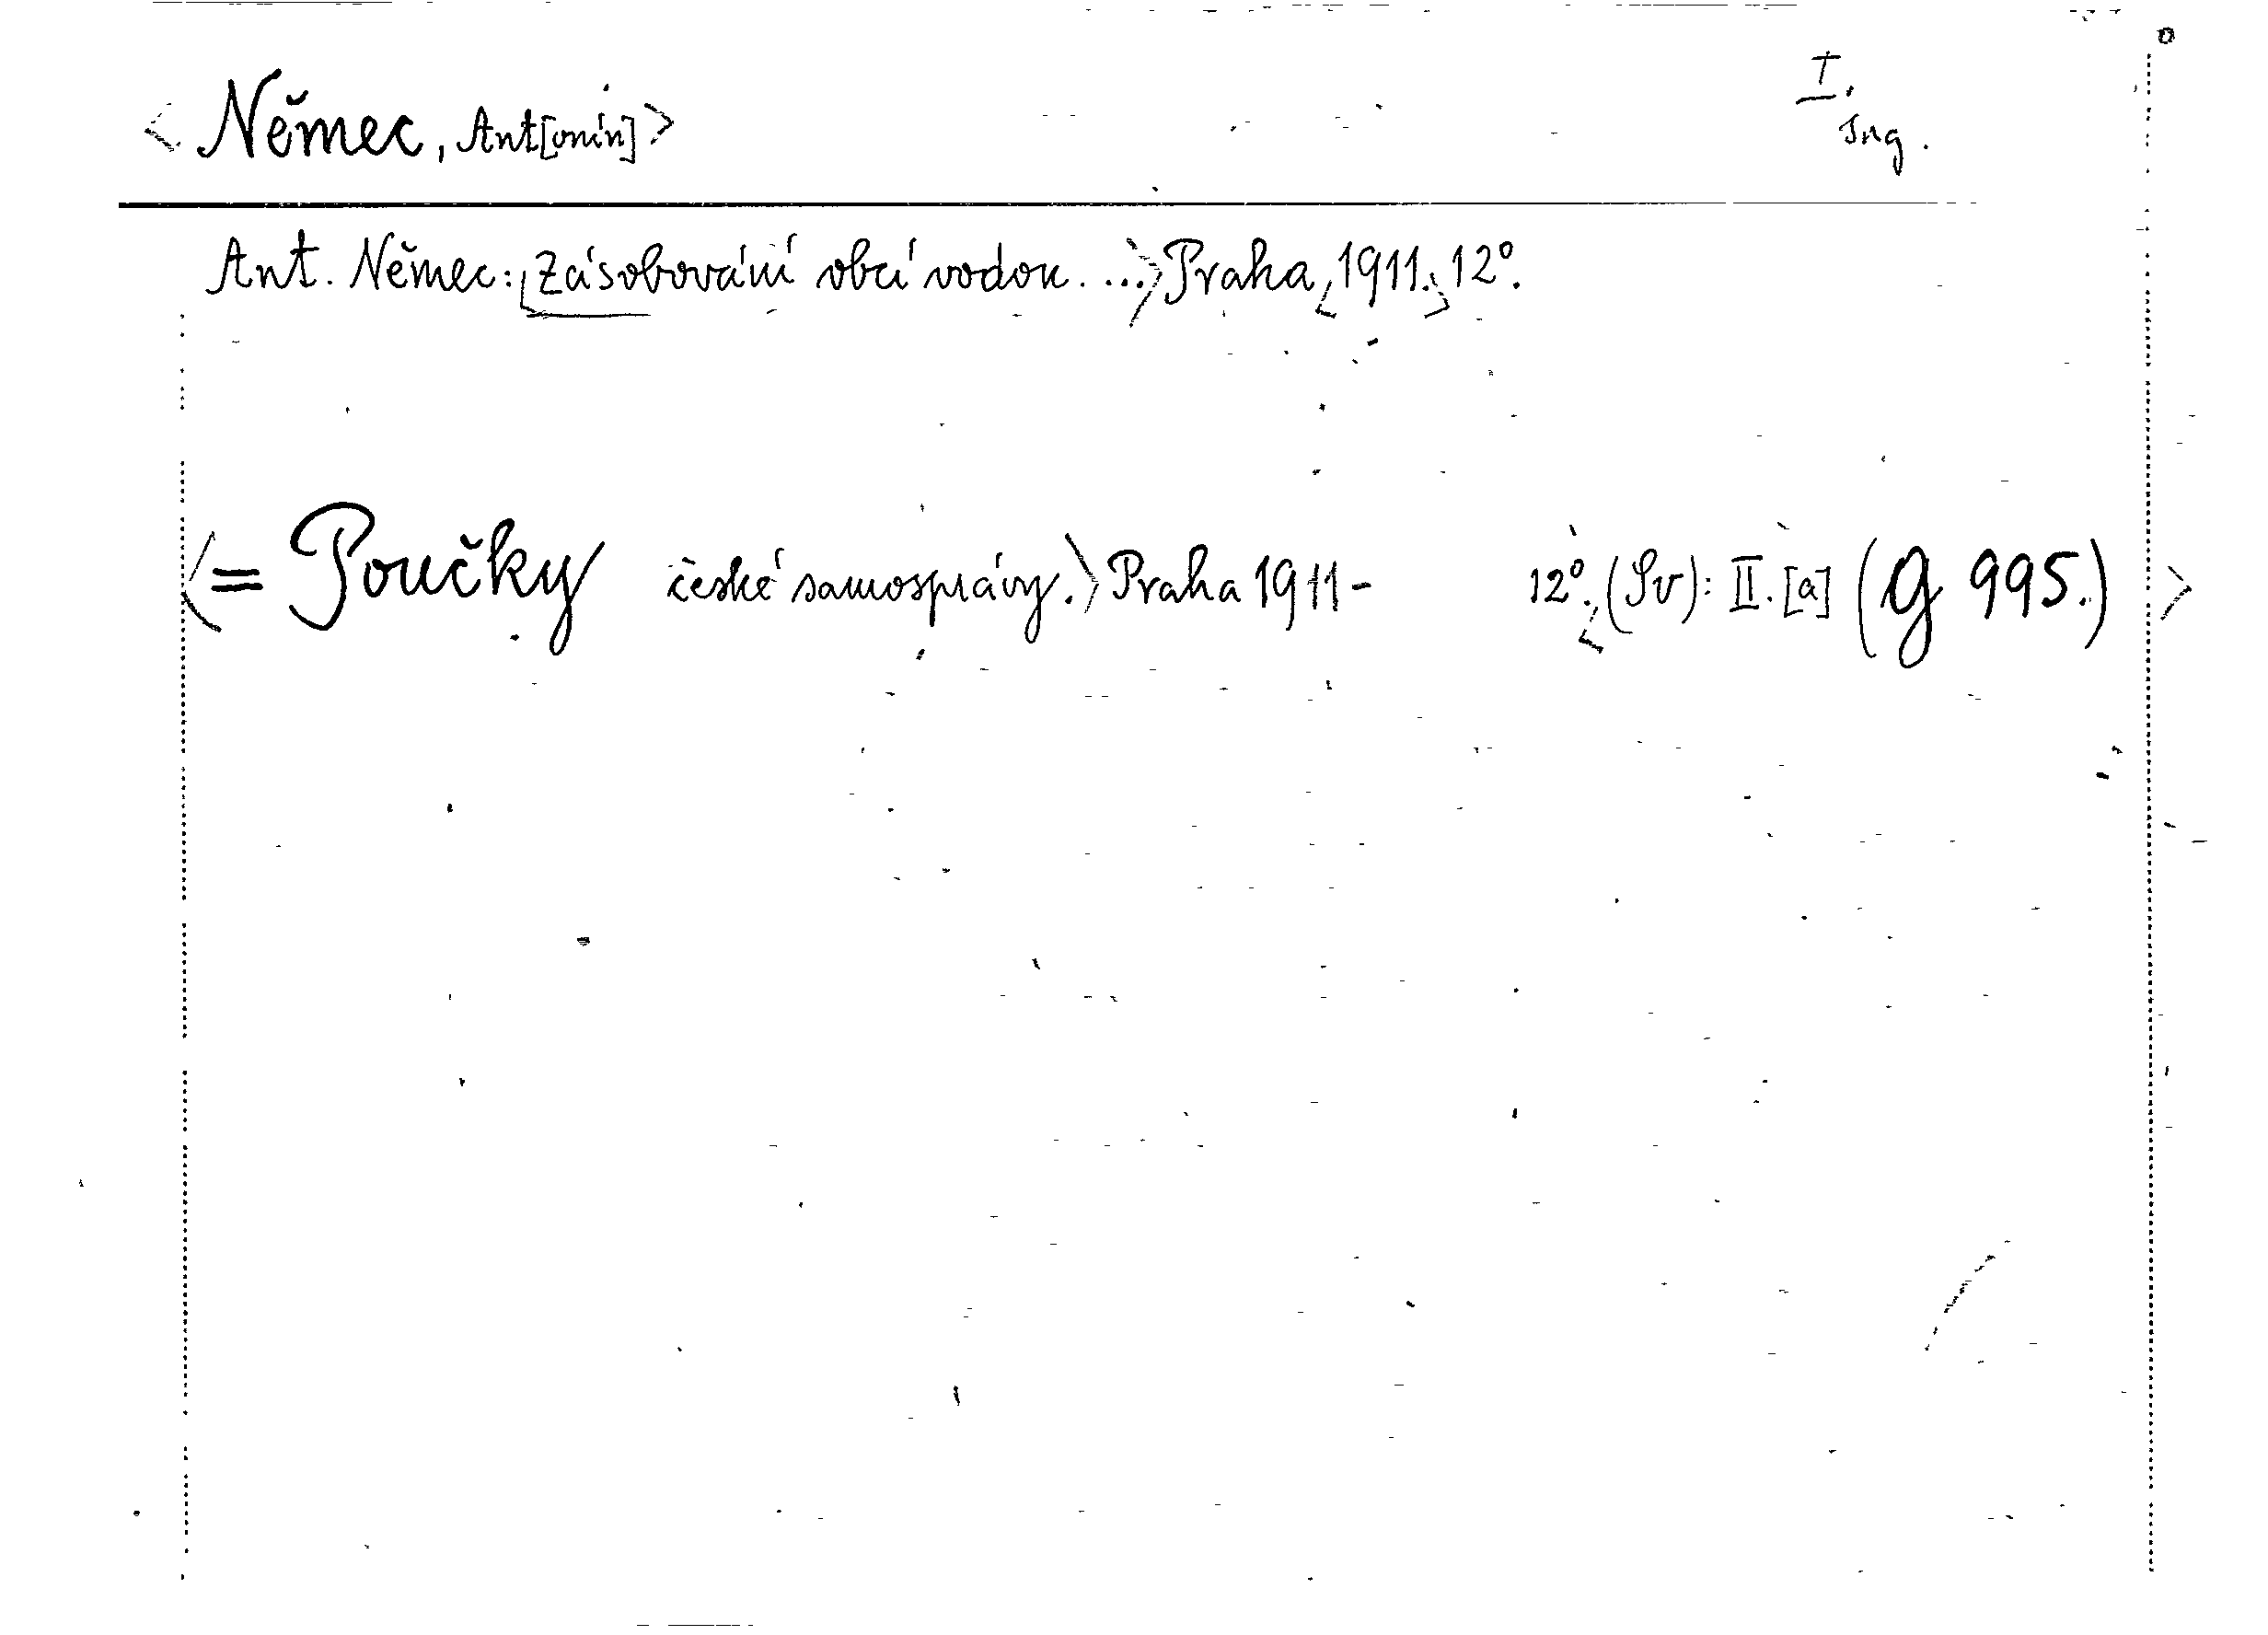 I.
<Němec, Ant[onín]> Ing.
Ant. Němec: Zásobování obcí vodou. ...> Praha, 1911. 12°.
<= Poučky české samosprávy.> Praha 1911 - 12°. (Sv): II. [a] (G 995.)>